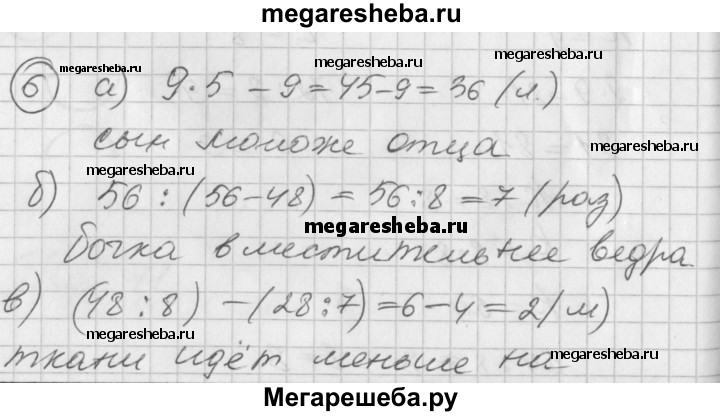 megaresheba.ru
megaresheba.ru
6 а) 9·5 - 9 = 45-9 = 36 (л.)
megaresheba.ru
сын моложе отца
megaresheba.ru
megaresheba.ru
б) 56 : (56-48) = 56:8 = 7 (раз)
megaresheba.ru
бочка вместительнее ведра
в) (48:8) - (28:7) = 6-4 = 2 (м)
megaresheba.ru
megaresheba.ru
ткани идёт меньше на
Мегарешеба.ру